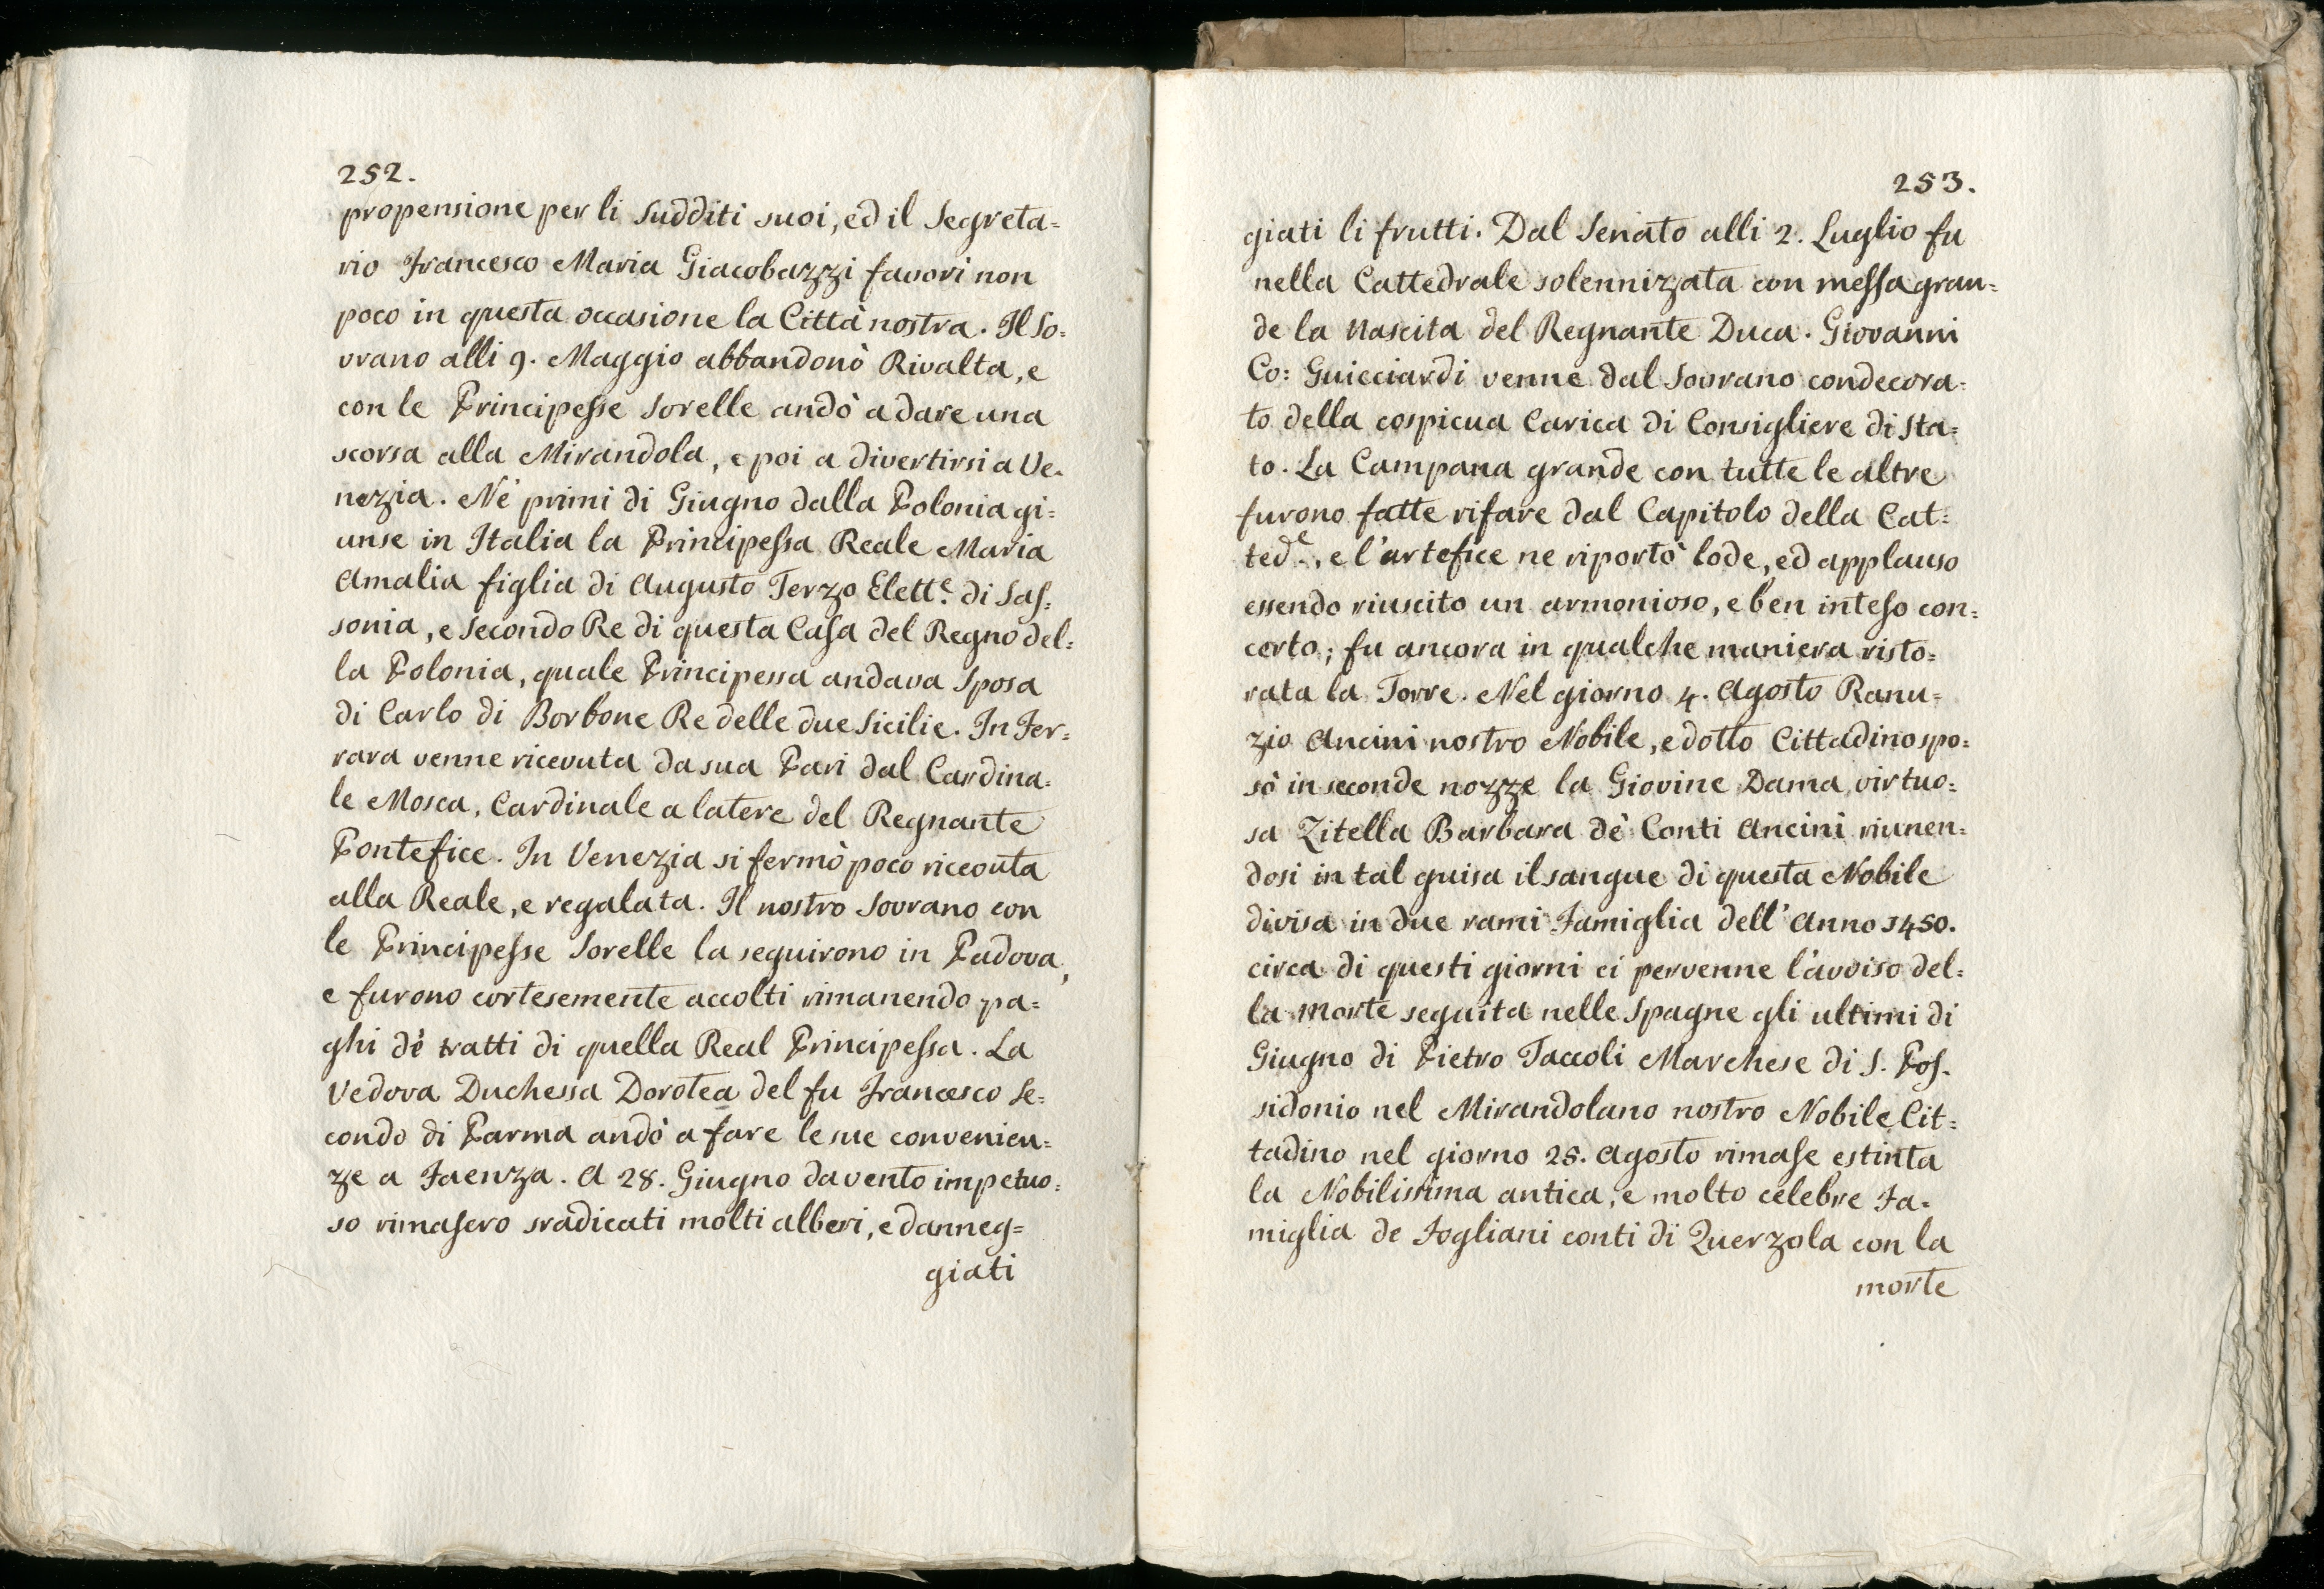 252.
propensione per li sudditi suoi, ed il Segreta=
rio Francesco Maria Giacobazzi favorì non
poco in questa occasione la Città nostra. Il So=
vrano alli 9. Maggio abbandonò Rivalta, e
con le Principesse Sorelle andò a dare una
scorsa alla Mirandola, e poi a divertirsi a Ve=
nezia. Ne' primi di Giugno dalla Polonia gi=
unse in Italia la Principessa Reale Maria
Amalia figlia di Augusto Terzo Elett.e di Sas=
sonia, e secondo Re di questa Casa del Regno del=
la Polonia, quale Principessa andava Sposa
di Carlo di Borbone Re delle due Sicilie. In Fer=
rara venne ricevuta da sua Pari dal Cardina=
le Mosca, Cardinale a latere del Regnante
Pontefice. In Venezia si fermò poco riceouta
alla Reale, e regalata. Il nostro Sovrano con
le Principesse Sorelle la seguirono in Padova,
e furono cortesemente accolti rimanendo pa=
ghi de' tratti di quella Real Principessa. La
Vedova Duchessa Dorotea del fu Francesco Se=
condo di Parma andò a fare le sue convenien=
ze a Faenza. A 28. Giugno da vento impetuo=
so rimasero sradicati molti alberi, e danneg=
giati
253.
giati li frutti. Dal Senato alli 2. Luglio fu
nella Cattedrale solennizzata con messa gran=
de la Nascita del Regnante Duca. Giovanni
Co: Guicciardi venne dal Sovrano condecora=
to della cospicua Carica di Consigliere di Sta=
to. La Campana grande con tutte le altre
furono fatte rifare dal Capitolo della Cat=
ted.e, e l'artefice ne riportò lode, ed applauso
essendo riuscito un armonioso, e ben inteso con=
certo; fu ancora in qualche maniera risto=
rata la Torre. Nel giorno 4. Agosto Ranu=
zio Ancini nostro Nobile, e dotto Cittadino spo=
sò in seconde nozze la Giovine Dama virtuo=
sa Zitella Barbara de' Conti Ancini riunen=
dosi in tal guisa il sangue di questa Nobile
divisa in due rami Famiglia dell' Anno 1450.
circa di questi giorni ci pervenne l'avviso del=
la morte seguita nelle Spagne gli ultimi di
Giugno di Pietro Taccoli Marchese di S. Pos=
sidonio nel Mirandolano nostro Nobile Cit=
tadino nel giorno 28. Agosto rimase estinta
la Nobilissima antica, e molto celebre Fa=
miglia de Fogliani conti di Querzola con la
morte